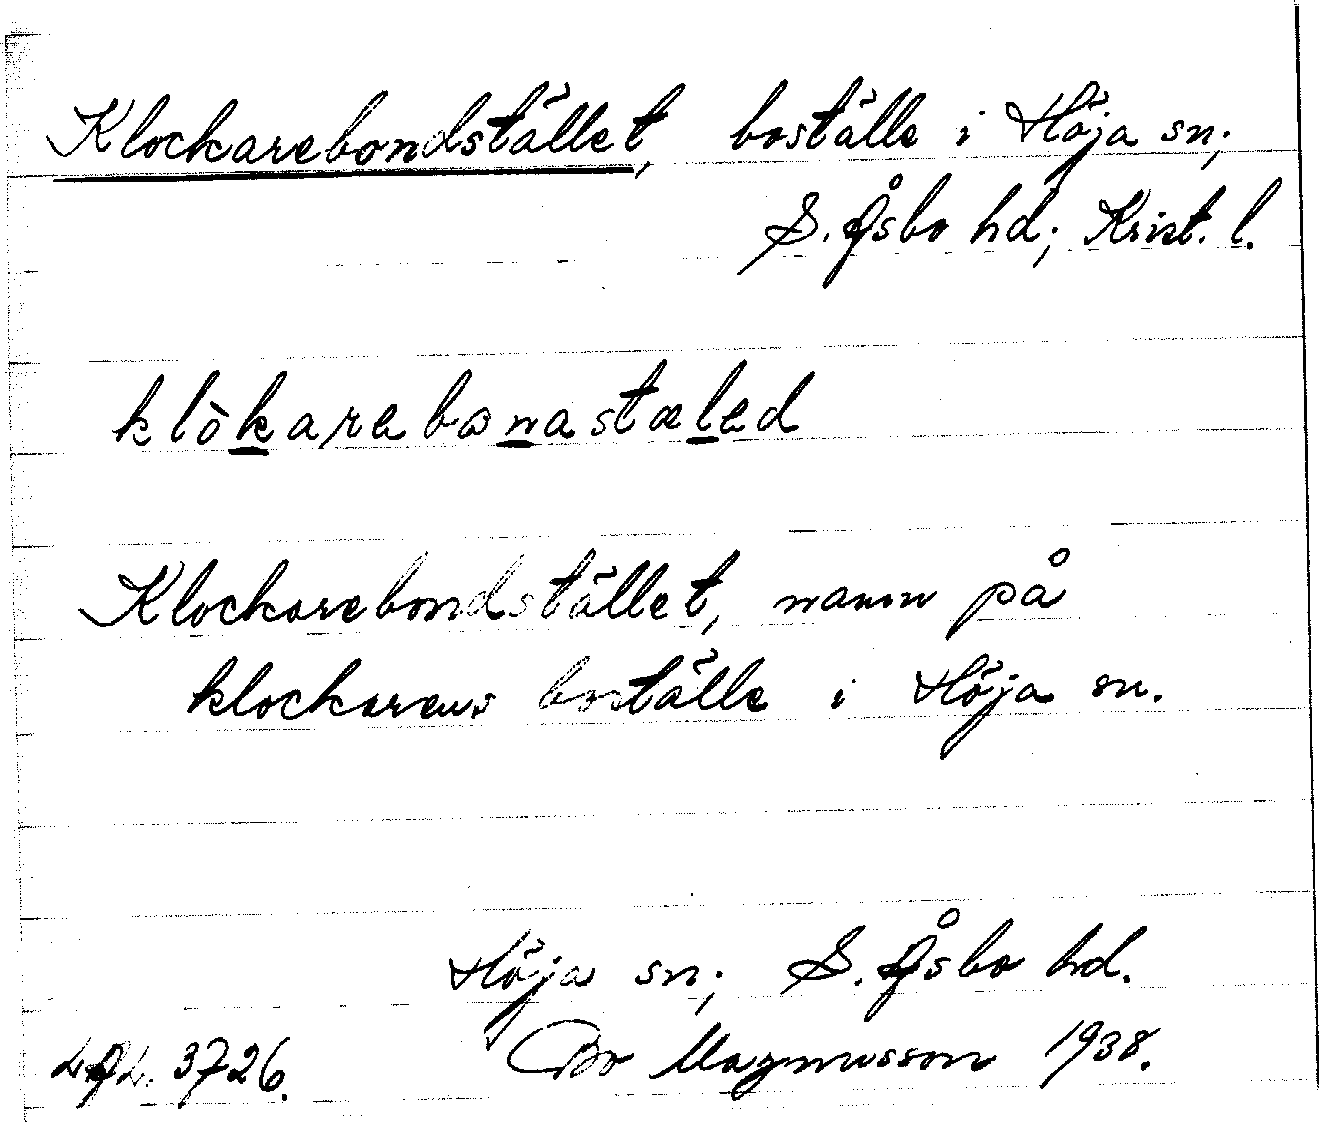 Klockarebondstället, boställe i Höja sn;
S. Åsbo hd; Krist. l.
klòkarebonastæled
Klockarebondstället, namn på
klockarens boställe i Höja sn.
Höja sn; S. Åsbo hd.
3726. Bo Magnusson 1938.